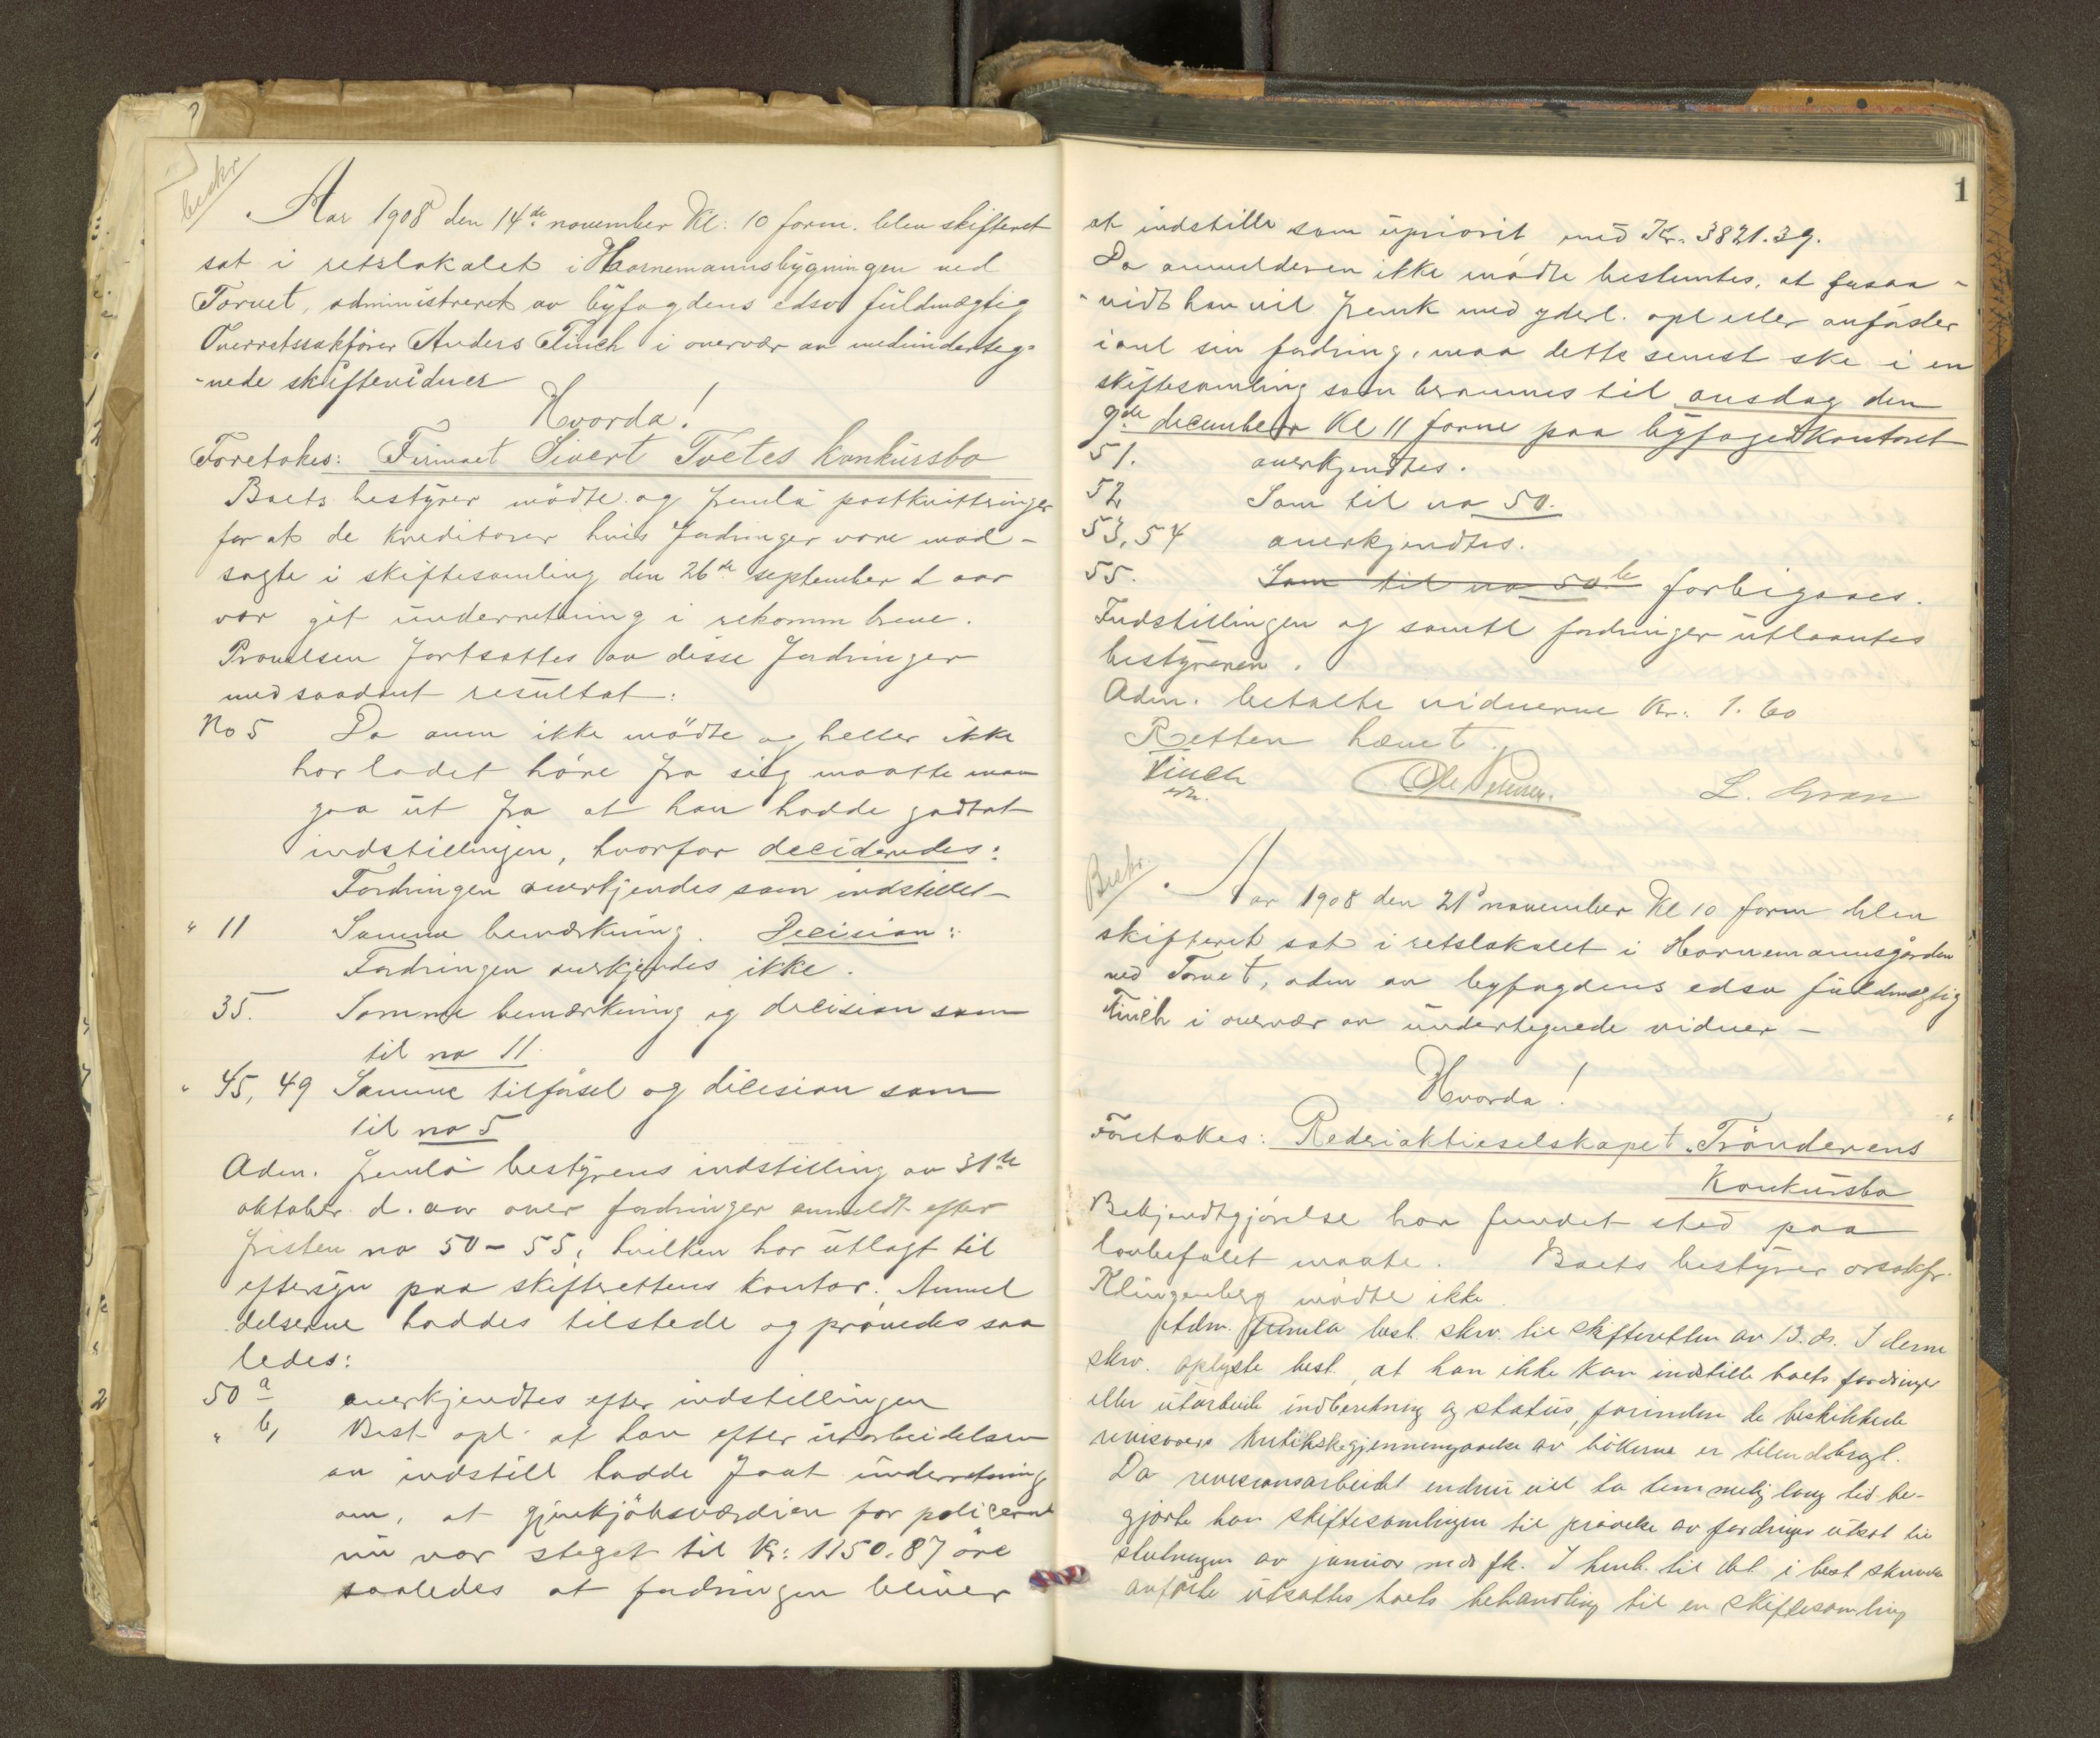 beskr
Aar 1908 den 14de november Kl: 10 form. blev skifteret
sat i retslokalet i Hornemannsbygningen ved
Torvet, administreret av byfogdens edsv fuldmægtig
Overretssakfører Anders Finch i overvær av medunderteg-
-nede skiftevidner
Hvorda!
Foretokes: Firmaet Sivert Tvetes konkursbo
Boets bestyrer mödte og fremla postkvitteringer
for at de kreditorer hvis fordringer vare mod-
sagte i skiftesamling den 26de september d aar
var git underretning i rekomm breve.
Prövelsen fortsattes av disse fordringer
med saadant resultat:
No 5 Da anm ikke mödte og heller ikke
har ladet höre fra sig maatte man
gaa ut fra at han hadde godtat
indstillingen, hvorfor decideredes:
Fordringen anerkjendes som indstillet-
" 11 Samme bemærkning. Decision:
Fordringen anerkjendes ikke.
35. Samme bemærkning og decision som
til no 11.
" 45, 49 Samme tilförsel og decision som
til no 5
Adm. fremla bestyrens indstilling av 31te
oktober d. aar over fordringer anmeldt efter
fristen no 50 - 55, hvilken har utlagt til
eftersyn paa skifterettens kontor. Anmel
delserne haddes tilstede og prövedes saa
ledes:
50 a anerkjendtes efter indstillingen
" b, Best opl. at han efter utarbeidelsen
av indstill hadde faat underretning
om, at gjenkjöbsværdien for policerne
nu var steget til Kr: 1150.87 öre
saaledes at fordringen bliver
1
at indstille som uprivrit med Kr. 3821.39.
Da anmelderen ikke mödte bestemtes, at forsaa-
-vidt han vil fremk med yderl. opl eller anförsler
i anl sin fordring, maa dette senest ske i en
skiftesamling som berammes til onsdag den
9de december Kl 11 form paa byfogedkontoret
51. anerkjendtes.
52 Som til no 50.
53, 54 anerkjendtes.
55. Som til no 50 b forbigaaes.
Indstillingen og samtl fordringer utlaantes
bestyreren.
Adm. betalte vidnerne Kr: 1.60
Retten hævet.
Finch
edsv.
Ole Petersen. L. Gran
Beskr.
Aar 1908 den 21de november Kl 10 form blev
skifteret sat i retslokalet i Hornemannsgården
ved Torvet, adm av byfogdens edsv fuldmægtig
Finch i overvær av undertegnede vidner -
Hvorda!
Foretokes: Rederiaktieselskapet "Trönderens"
Konkursbo
Bekjendtgjörelse har fundet sted paa
lovbefalet maate. Boets bestyrer orsakfr.
Klingenberg mödte ikke.
Adm. fremla best. skriv. til skifteretten av 13. ds. I denne
skriv. oplyste best., at han ikke kan indstille boets fordringer
eller utarbeide indberetning og status, forinden de beskikkede
revisorers kritiske gjennemgaaelse av bökerne er tilendebragt.
Da revisionsarbeidet endnu vil ta temmelig lang tid be-
gjærte han skiftesamlingen til prövelse av fordringer utsat til
slutningen av januar md fk. I henh. til det i best skrivelse
anförte utsattes boets behandling til en skiftesamling